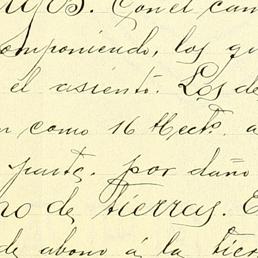 Con el cam
omponiendo, los qu
el asiento. Los de
como 16 Hects. a
parte, por daño
no de tierras. E
de abono á la tier